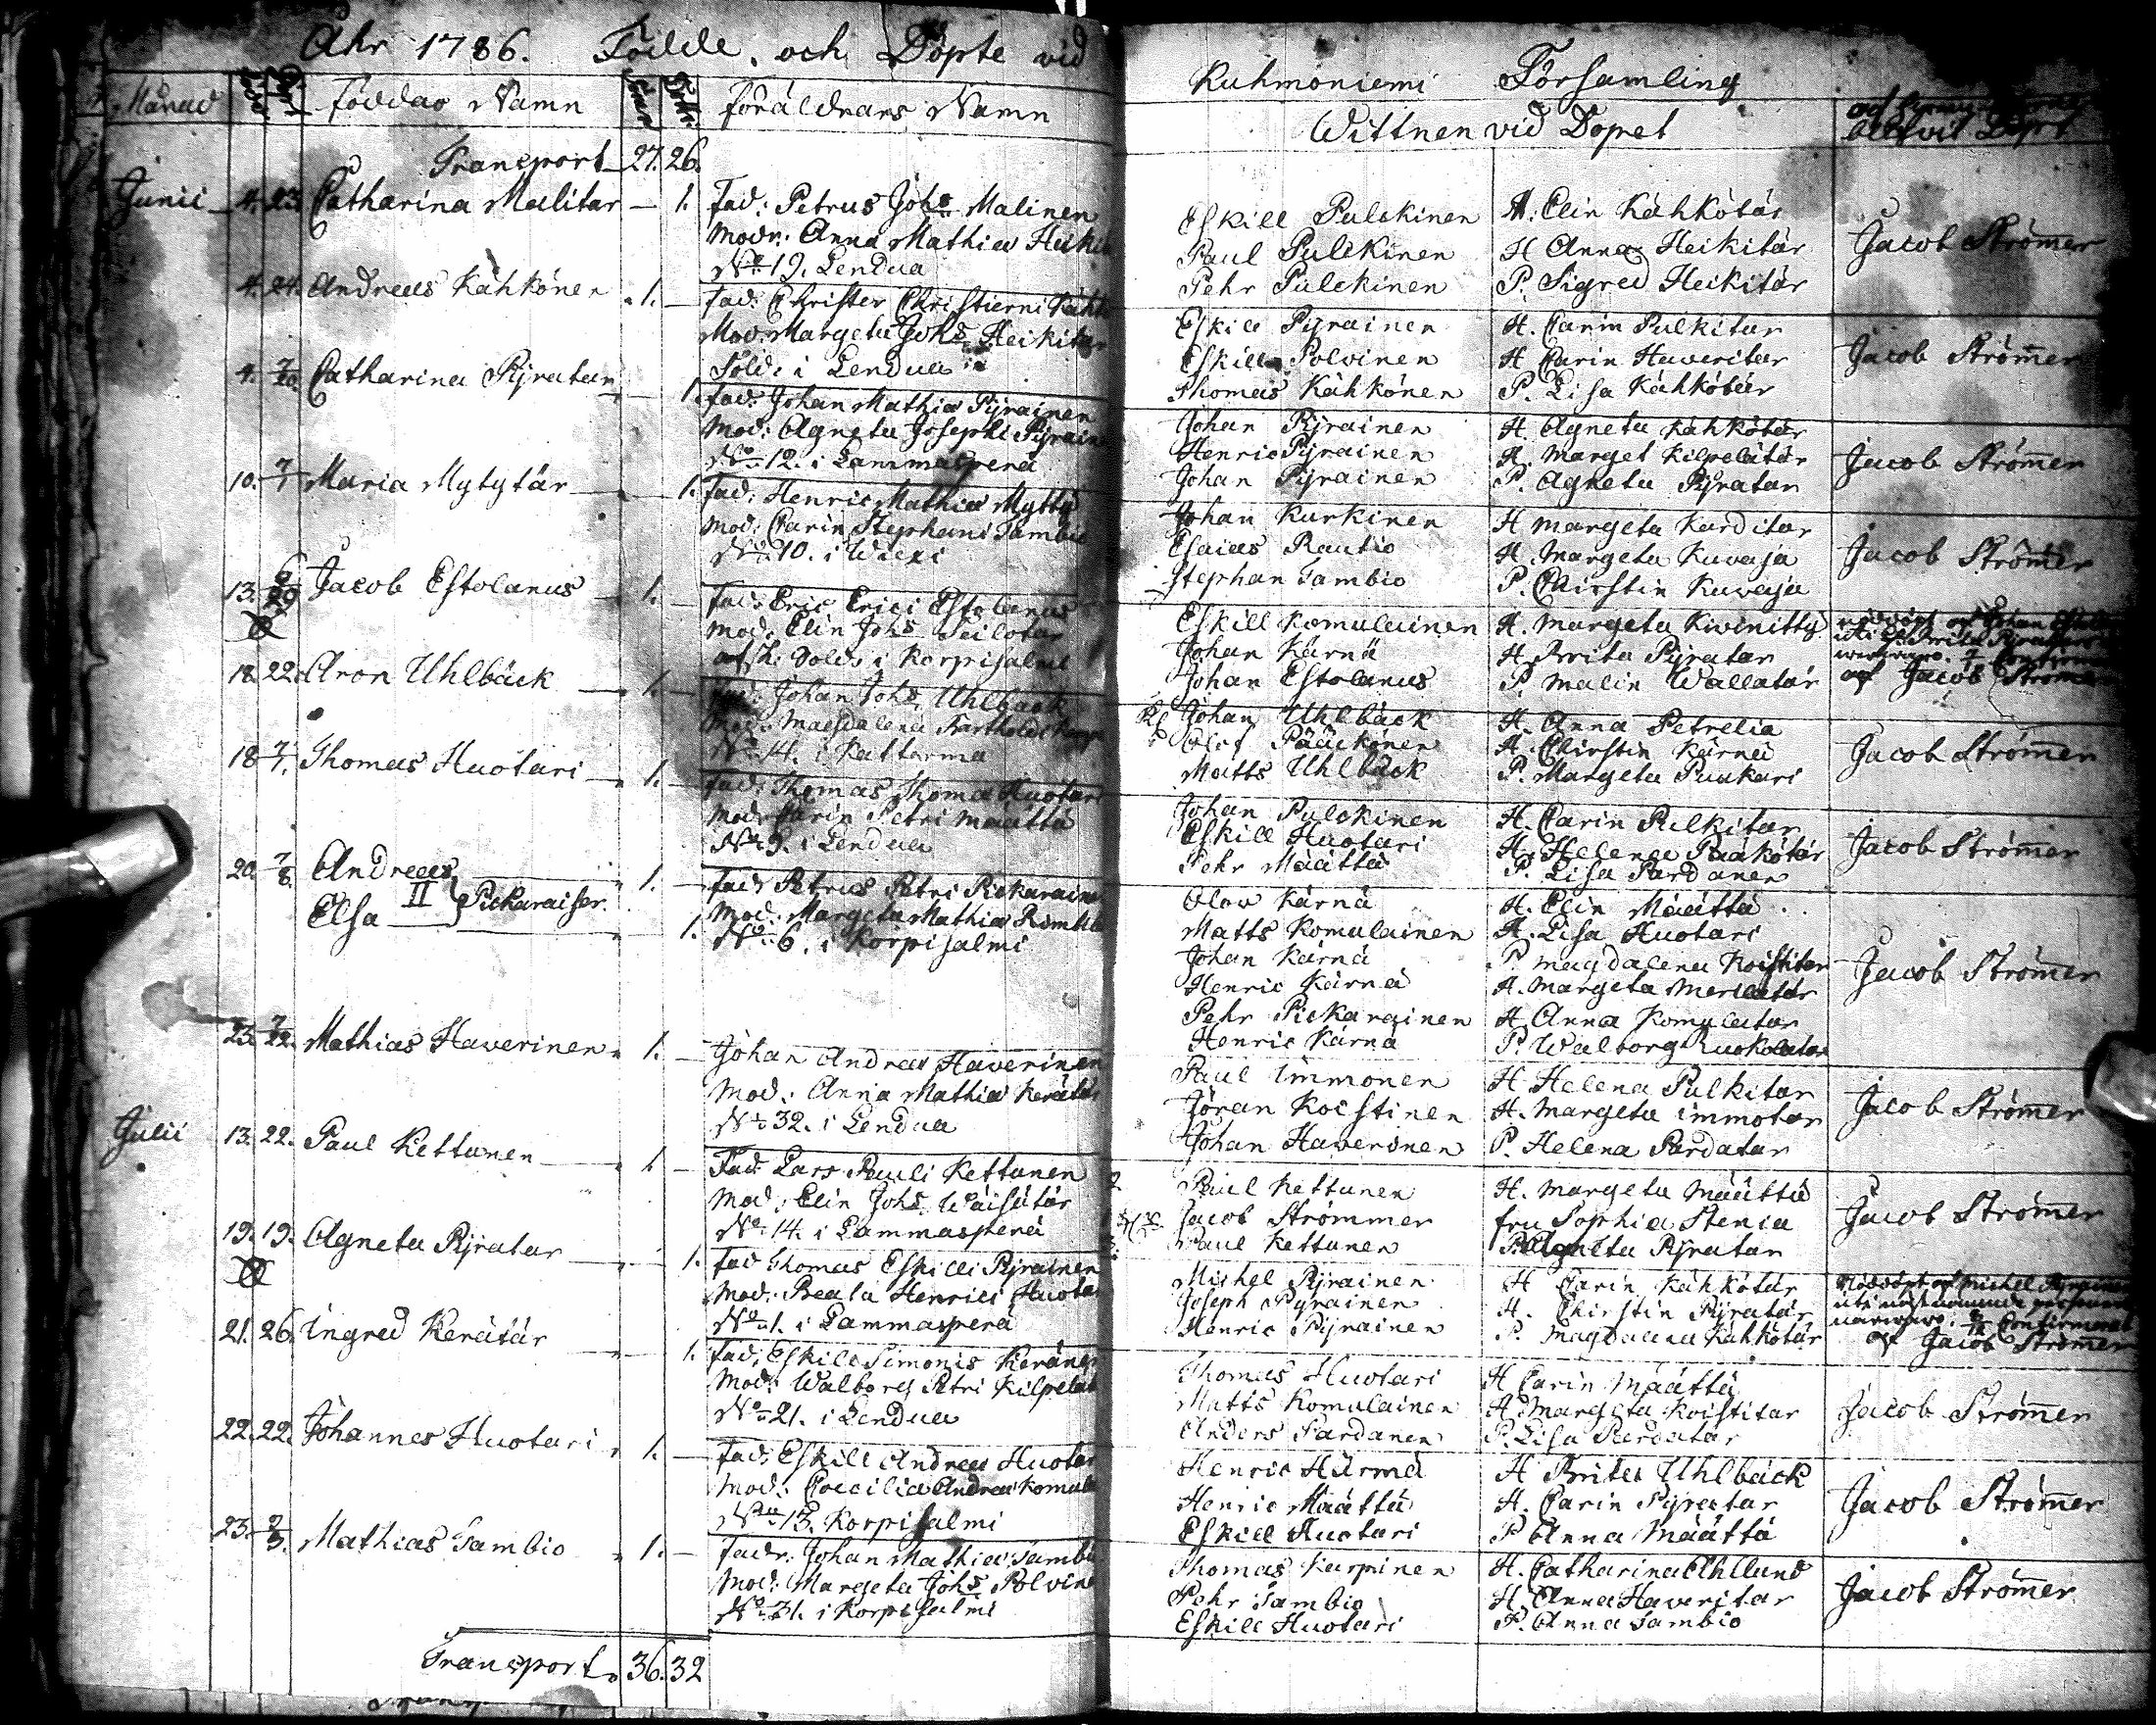 Åhr 1786. Födde och Döpte vid
Månad föddas Namn föräldrars Namn
Transport 27. 26.
Junii 4. 23. Catharina Malitar — 1. fad: Petrus Johs Malinen
Modr: Anna Mathiæ
No 19. Lendua
4. 24. Andreas Kähkönen 1. — fad: Christer Christierni
Mod: Margeta Johs Heikitar
Sold: i Lendua
4. Catharina Pyratar 1. fad: Johan Mathiæ Pyrainen
Mod: Agneta Josephi
No 12. i Lammasperä
10. 7 Maria Mytytär 1. fad: Henric Mathiæ Mytty
Mod: Carin Stephani
No 10. i Wiexi
13. Jacob Estolanus 1. — fad: Eric Erici Estolanus
Mod: Elin Johs
Sold: i Korpisalmi
18. 22. Aron Uhlbäck 1. — fad: Johan Johs Uhlbäck
Mod: Magdalena
No 14. i Kattarma
18. 7. Thomas Huotari 1. — fad: Thomas Thomæ Huotari
Mod: Carin Petri Määttä
No 9. i Lendua
20. 7/8. Andreas 1. — fad: Petrus Petri
II Pickaraiser. Mod: Margeta Mathiæ
Elsa 1. No 6. i Korpisalmi
23. 7/22. Mathias Haverinen 1. — Johan Andreæ Haverinen
Mod: Anna Mathiæ Kerätär
No 32. i Lendua
Julii 13. 22. Paul Kettunen 1. — Fad: Lars Pauli Kettunen
Mod: Elin Johs Wäisätär
No 14. i Lammasperä
19. 19. Agneta Pyratar 1. fad Thomas Eskilli Pyrainen
Mod: Beata Henrici
No 1. i Lammasperä
21. 26. Ingred Kerätär 1. fad: Eskill Simonis
Mod: Walborg Petri
No 21. i Lendua
22. 22. Johannes Huotari 1. — fad: Eskill Andreæ
Mod: Cæcilia Andreæ
No 13. Korpisalmi
23. Mathias Tambio 1. — fadr: Johan Mathiæ
Mod: Margeta Johs
No 31. i Korpisalmi
Transport 36. 32
Kuhmoniemi Församling
Wittnen vid Dopet
Eskill Pulckinen H. Elin Kähkötär
Paul Pulckinen H Anna Heikitär Jacob Strömmer
Pehr Pulckinen P. Sigred Heikitär
Eskill Pyrainen H. Carin Pulkitar
Eskill Polvinen H Carin Haveritar Jacob Strömmer
Thomas Kähkönen P. Lisa Kähkötär
Johan Pyrainen H. Agneta Kähkötär
Henric Pyrainen H. Marget Kilpelätär Jacob Strömmer
Johan Pyrainen P. Agneta Pyratar
Johan Kurkinen H Margeta Karditar
Esaias Rautio H. Margeta Kuvaja Jacob Strömmer
Stephan Tambio P. Chirstin Kuvaja
Eskill Komulainen H. Margeta Kivinitty
Johan Kärnä H. Brita Pyratar
Johan Estolanus P. Malin Wallatär af Jacob Strömmer
Johan Uhlbäck H. Anna Petrelia
Olof Pääckönen H. Chirstin Kärnä Jacob Strömmer
Matts Uhlbäck P. Margeta Puukari
Johan Pulckinen H. Carin Pulkitar
Eskill Huotari H. Helena Jacob Strömmer
Pehr Määttä P. Lisa Pardanen
Olow Kärnä H. Elin Määttä
Matts Komulainen H. Lisa Huotari
Johan Kärnä P. Magdalena Koistitar Jacob Strömmer
Henric Kärnä H. Margeta
Pehr Pickarainen H. Anna Komulatar
Henric Kärnä P. Walborg Ruokolatar
Paul Immonen H Helena Pulkitar
Jöran Koistinen H. Margeta Immotar Jacob Strömmer
Johan Haverinen P. Helena Pardatar
Paul Kettunen H. Margeta Määttä
Jacob Strömmer fru Sophia Stenia Jacob Strömmer
Paul Kettunen P. Agneta Pyratar
Michel Pyrainen H Carin Kähkötär
Joseph Pyrainen H. Chirstin Pyratär
Henric Pyrainen P. Magdalena Kähkötär af Jacob Strömmer
Thomas Huotari H Carin Määttä
Matts Komulainen H. Margeta Koistitar Jacob Strömmer
Anders Pardanen P. Lisa Pardatar
Henric Härmä H Brita Uhlbäck
Henric Määttä H. Carin Pyratar Jacob Strömmer
Eskill Huotari P Anna Määttä
Thomas Karpinen H. Catharina Ahllund
Pehr Tambio H. Anna Haveritar Jacob Strömmer
Eskill Huotari P. Anna Tambio